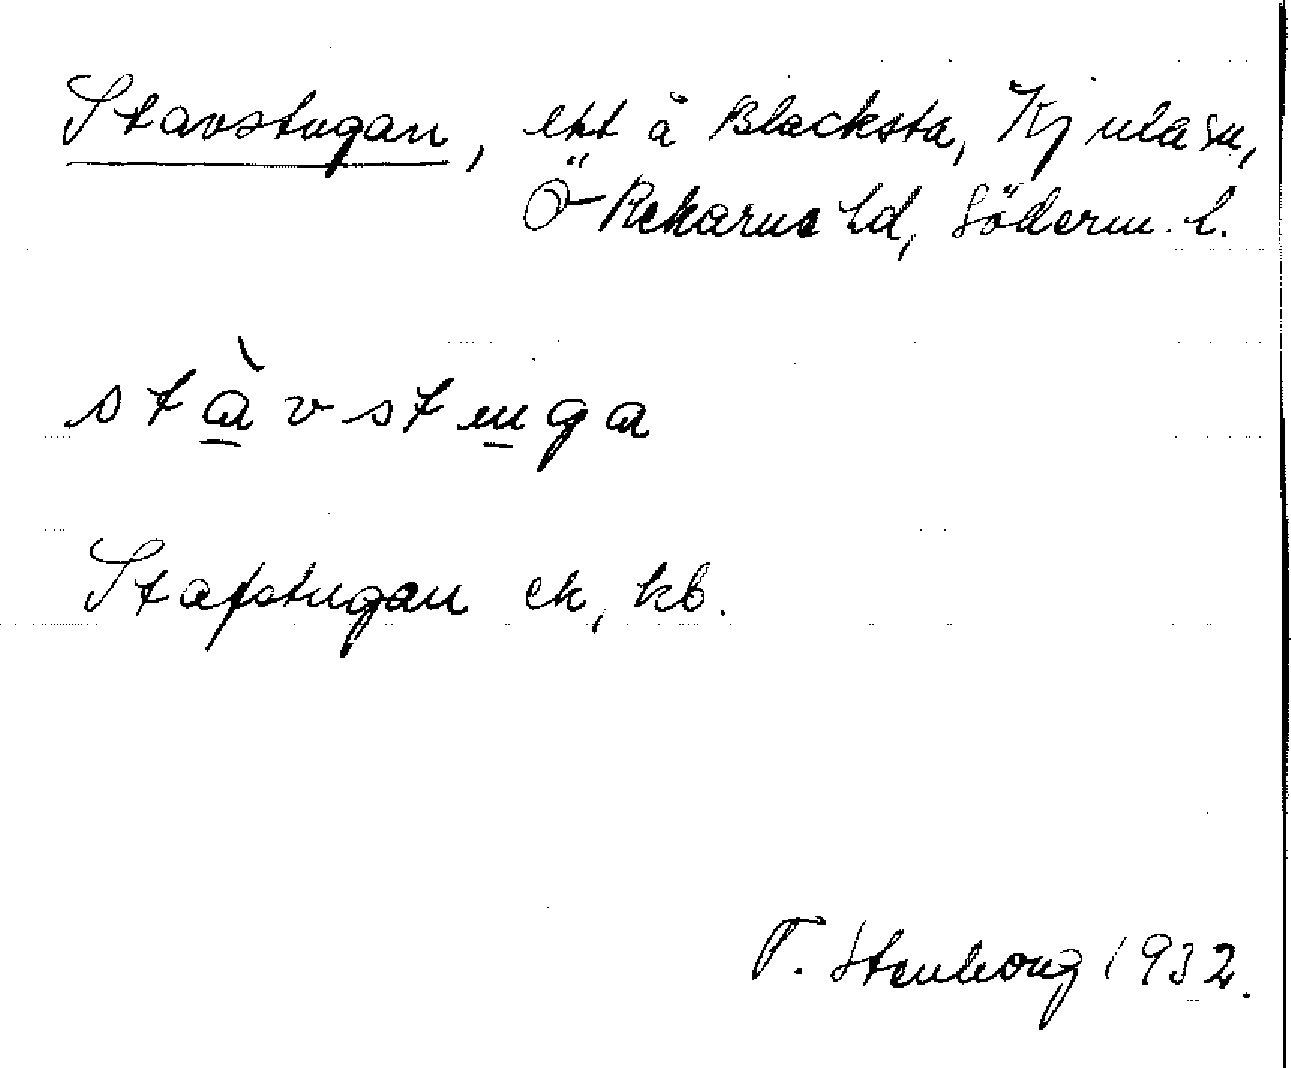 Stavstugan, ett å Blacksta, Kjula sn,
Ö Rekarne hd, Söderm. l.
stàvstuga
Stafstugan ek, kb.
T. Stenborg 1932.